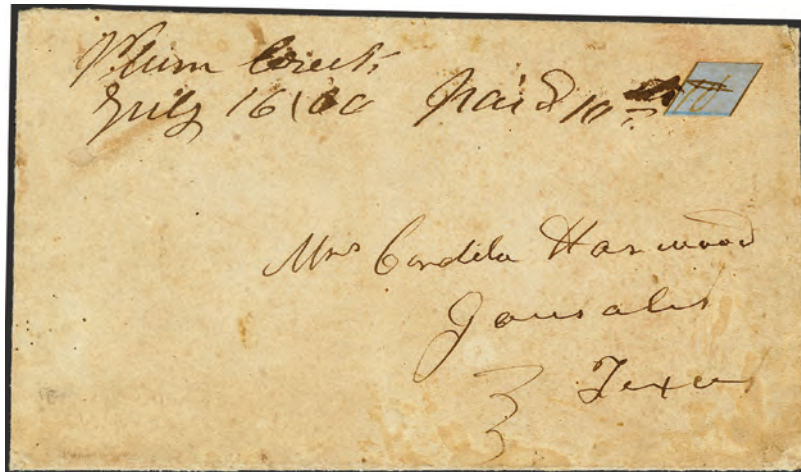 Plum Creek
July 16/00 Paid 10 10
Mrs Cordelia Harwood
Gonzales
Texas